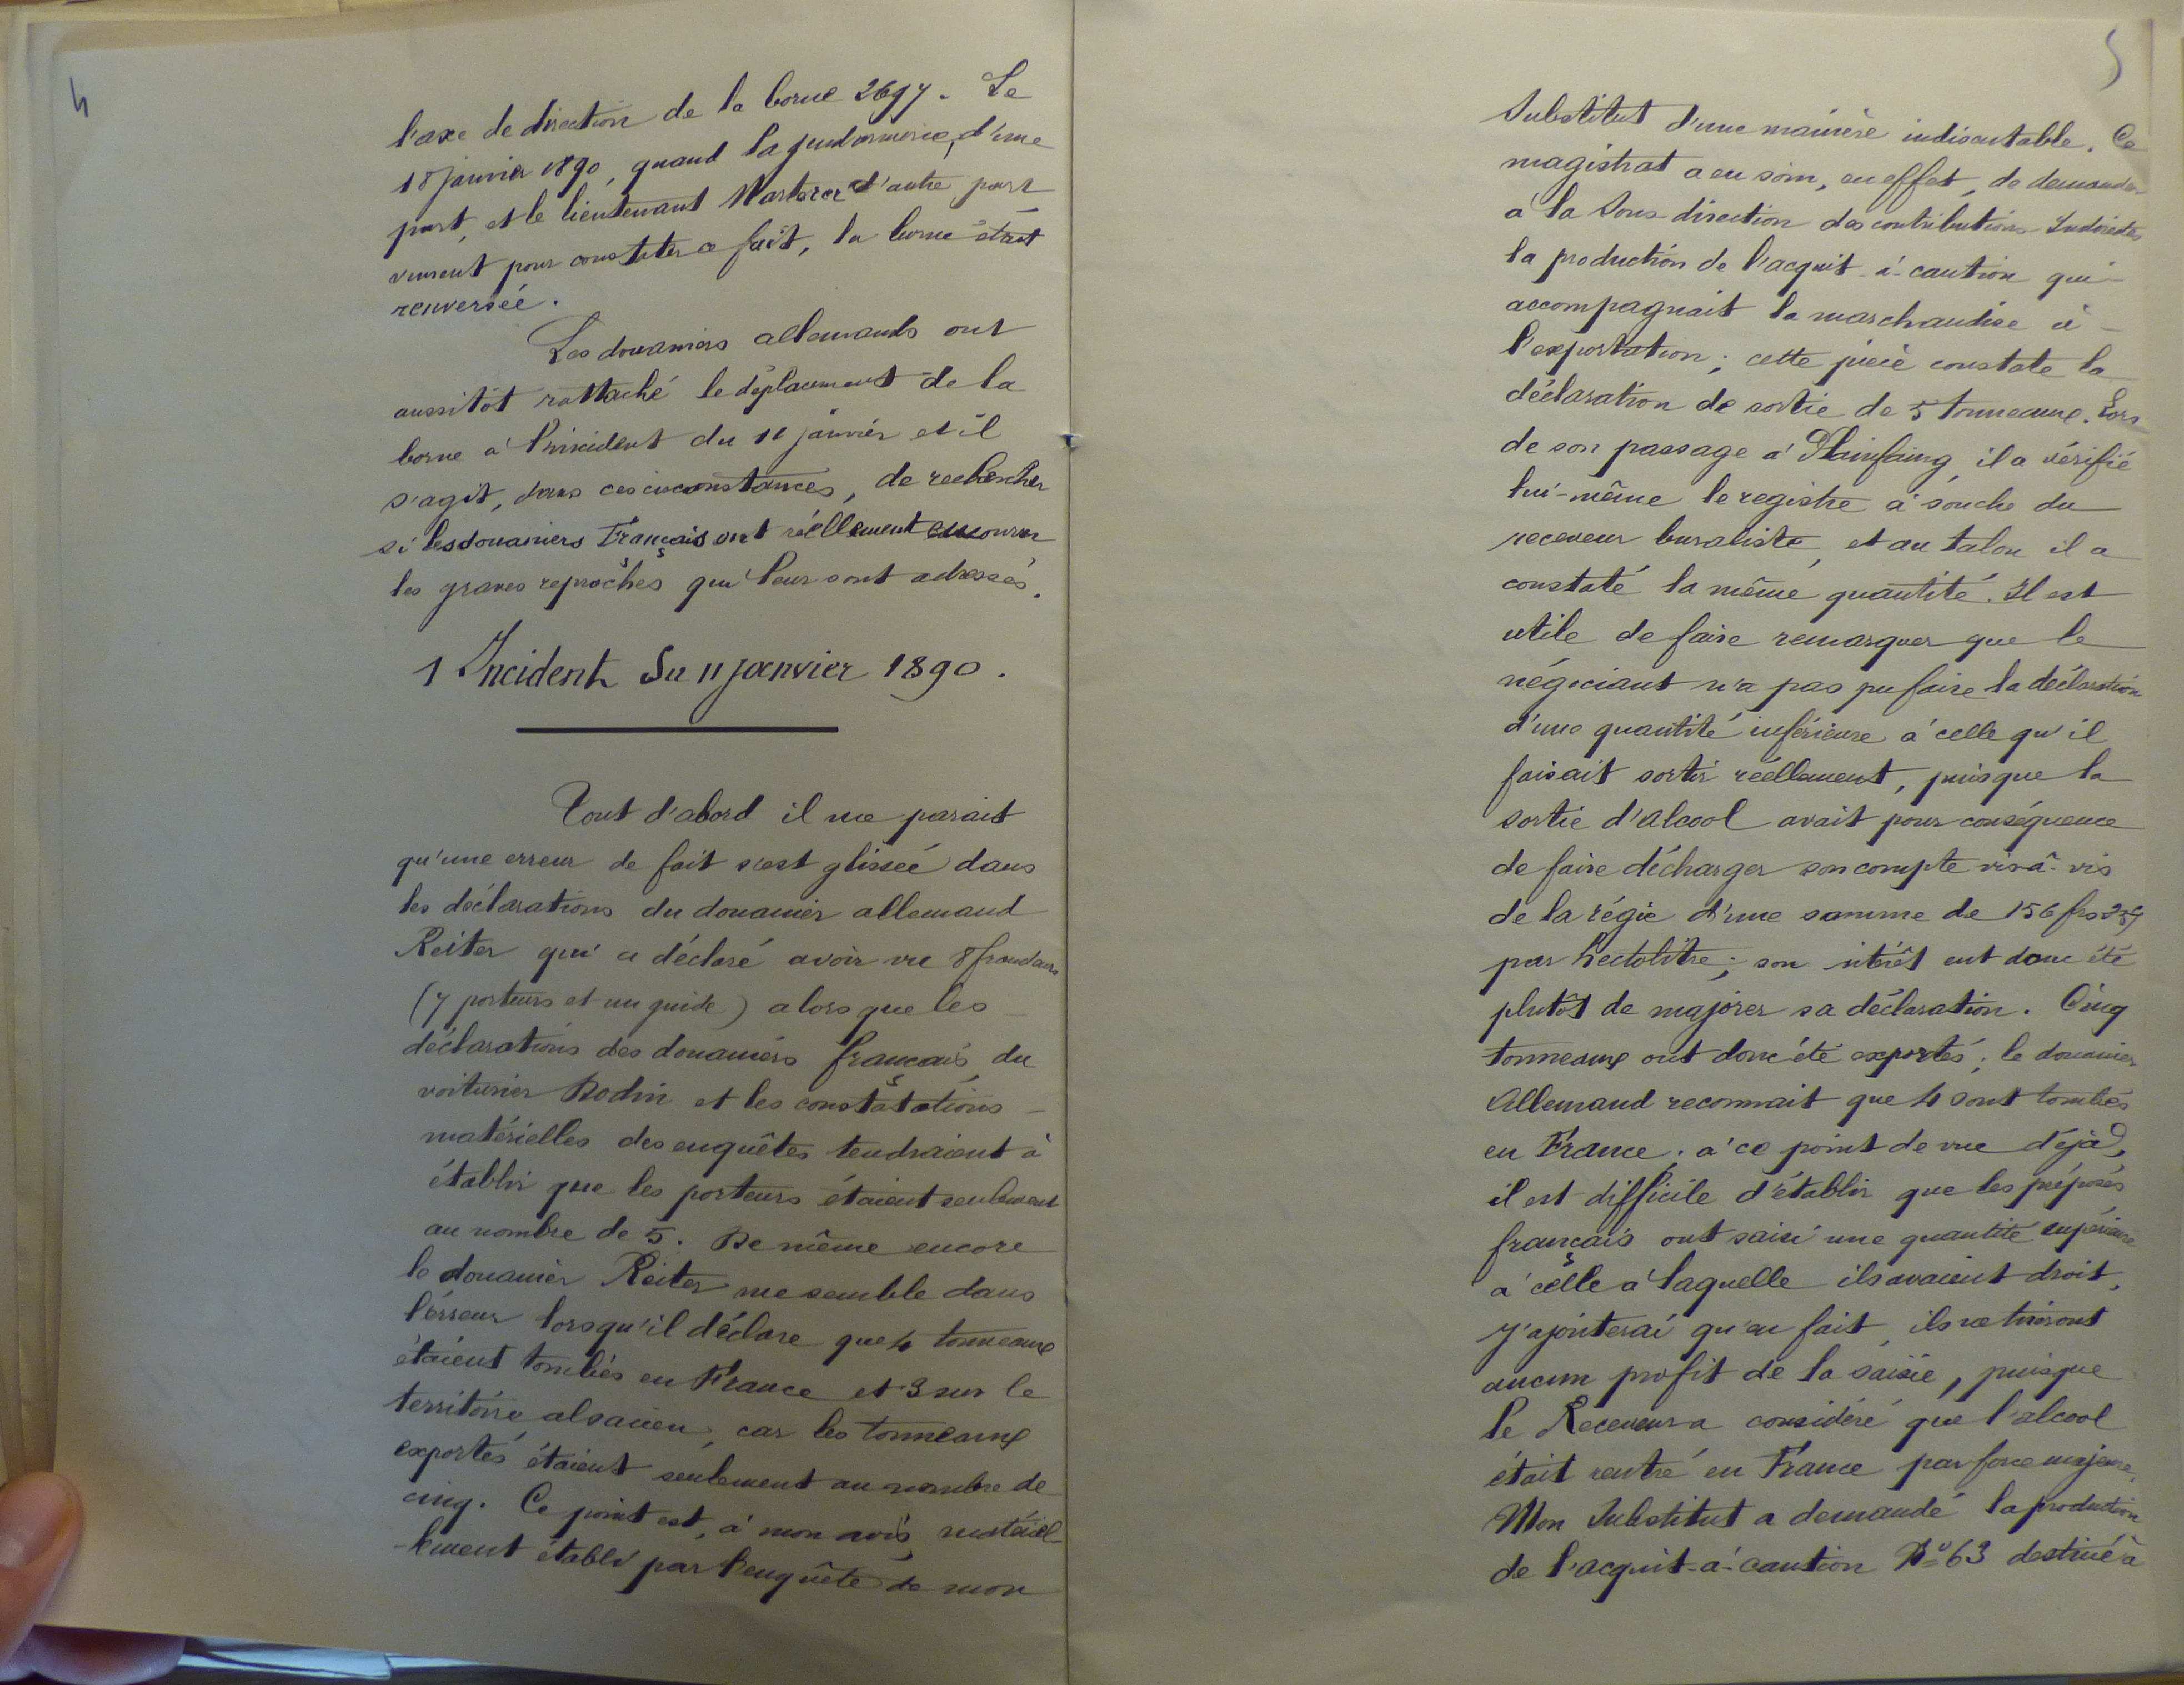 4
l'axe de direction de la borne 2697. Le
18 janvier 1890, quand la gendarmerie, d'une
part, et le lieutenant d'autre part
vinrent pour constater ce fait, la borne était
renversée.
Les douaniers allemands ont
aussitôt rattaché le déplacement de la
borne à l'incident du 11 janvier et il
s'agit, dans ces circonstances, de rechercher
si les douaniers Français ont réellement encouru
les graves reproches qui leur sont adressés.
1 Incident du 11 janvier 1890.
Tout d'abord il me parait
qu'une erreur de fait s'est glissée dans
les déclarations du douanier allemand
Reiter qui a déclaré avoir vu 8 fraudeurs
(7 porteurs et un guide) alors que les
déclarations des douaniers français, du
voiturier Bodin et les constatations
matérielles des enquêtes tendraient à
établir que les porteurs étaient seulement
au nombre de 5. De même encore
le douanier Reiter me semble dans
l'erreur lorsqu'il déclare que 4 tonneaux
étaient tombés en France et 3 sur le
territoire alsacien, car les tonneaux
exportés étaient seulement au nombre de
cinq. Ce point est, à mon avis, matériel-
-lement établi par l'enquête de mon
5
Substitut d'une manière indiscutable. Ce
magistrat a eu soin, en effet, de demander
à la Sous-direction des contributions Indirectes
la production de l'acquit-à-caution qui
accompagnait la marchandise à
l'exportation; cette pièce constate la
déclaration de sortie de 5 tonneaux. Lors
de son passage à Plainfaing, il a vérifié
lui-même le registre à souche du
receveur buraliste, et au talon il a
constaté la même quantité. Il est
utile de faire remarquer que le
négociant n'a pas pu faire la déclaration
d'une quantité inférieure à celle qu'il
faisait sortir réellement, puisque la
sortie d'alcool avait pour conséquence
de faire décharger son compte vis-à-vis
de la régie d'une somme de 156 frs 25
par hectolitre; son intérêt eut donc été
plutôt de majorer sa déclaration. Cinq
tonneaux ont donc été exportés; le douanier
Allemand reconnait que 4 sont tombés
en France; à ce point de vue déjà,
il est difficile d'établir que les préposés
français ont saisi une quantité supérieure
à celle à laquelle ils avaient droit,
J'ajouterai qu'en fait, ils ne tireront
aucun profit de la saisie, puisque
le Receveur a considéré que l'alcool
était rentré en France par force majeure.
Mon Substitut a demandé la production
de l'acquit-à-caution No 63 destiné à